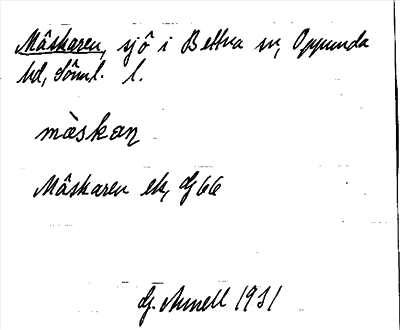 Måskaren, sjö i Bettna sn, Oppunda
hd, Söml. l.
måskan
Måskaren ek, G 66
G. Annell 1931